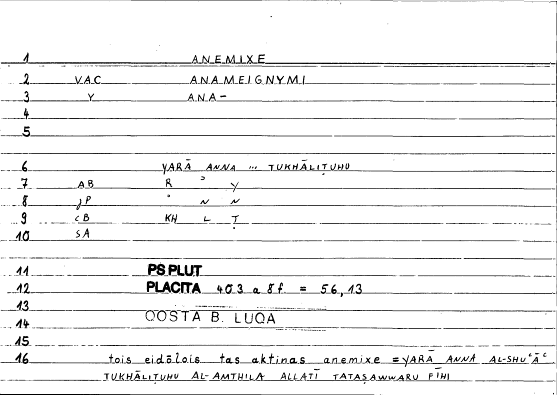 1 ANEMIXE
2 VAC ANAMEIGNYMI
3 Y ANA-
4
5
6 YARĀ ANNA ... TUKHĀLIṬUHU
7 AB R ʾ Y
8 JP ʾ N N
9 CB KH L Ṭ
10 SA
11 PS PLUT
12 PLACITA 403 a 8f = 56,13
13
14 QOSTA B. LUQA
15
16 tois eidōlois tas aktinas anemixe = YARĀ ANNA AL-SHUʿĀʿ
TUKHĀLIṬUHU AL-AMTHILA ALLATĪ TATAṢAWWARU FĪHI